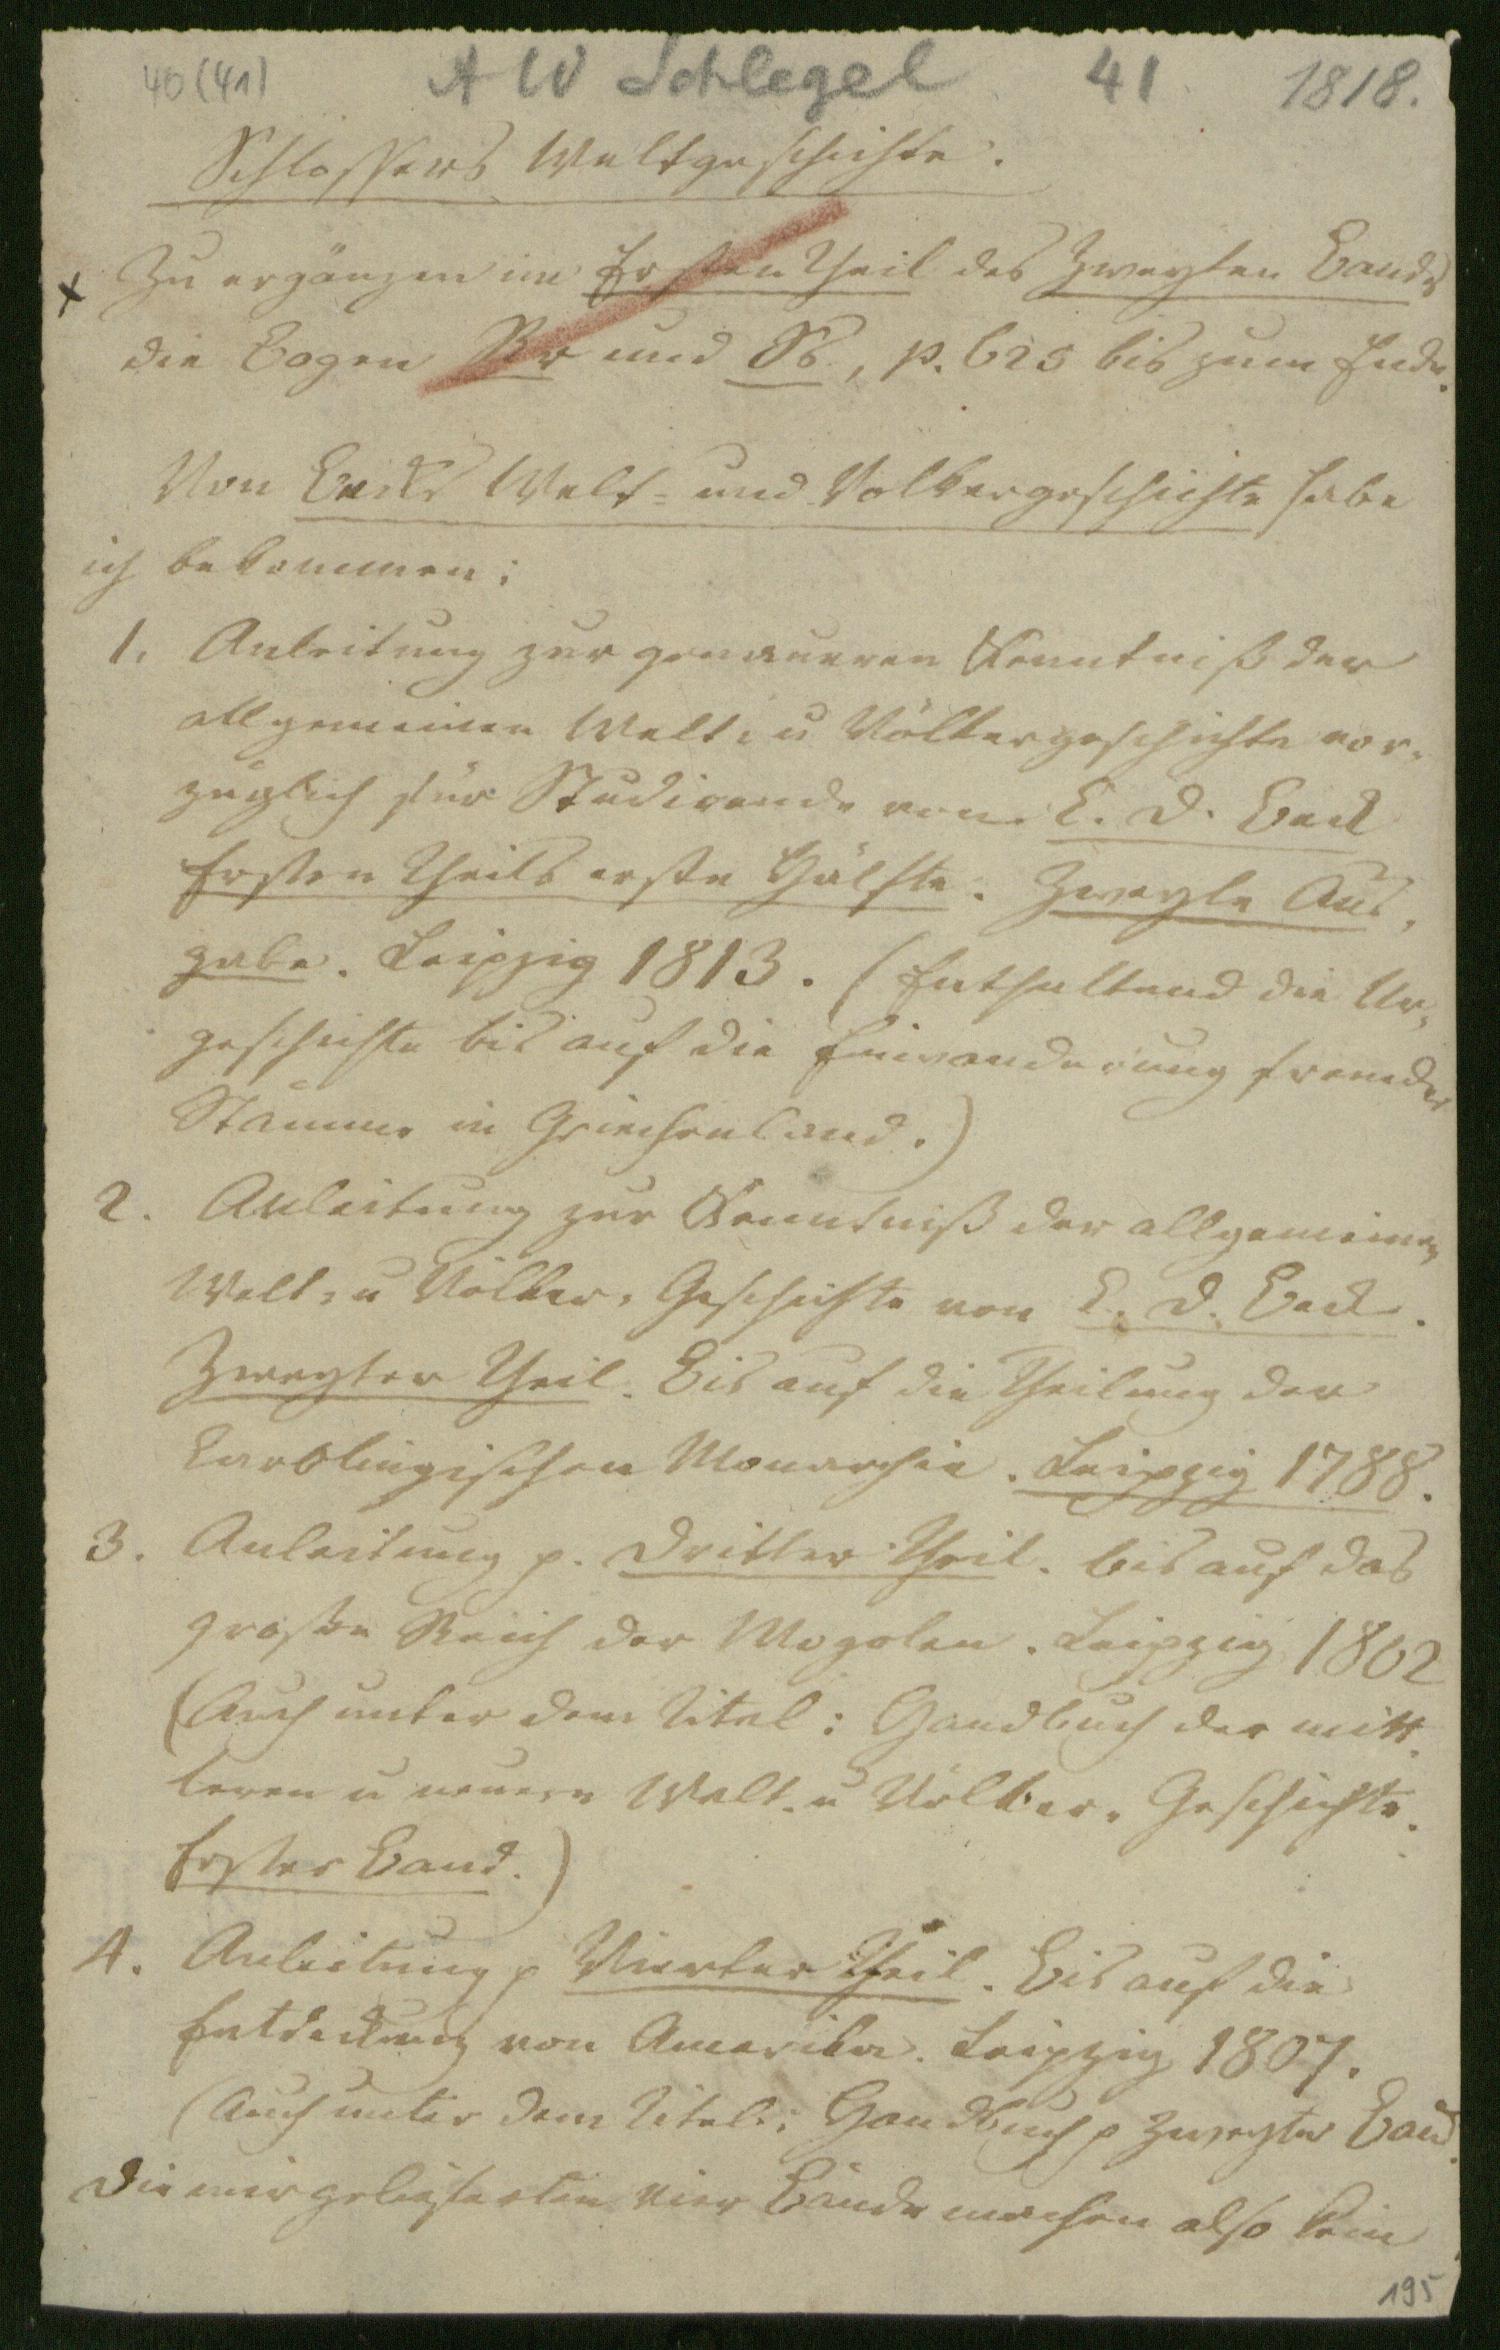 40(41) A W Schlegel 41 1818.
Schlossers Weltgeschichte.
Zu ergänzen im Ersten Theil des Zweyten Bands
die Bogen Rr und Ss, p. 625 bis zum Ende.
Von Becks Welt- und Völkergeschichte habe
ich bekommen:
1. Anleitung zur genaueren Kenntniß der
allgemeinen Welt- u Völkergeschichte vor-
züglich für Studirende von C. D. Beck
Ersten Theils erste Hälfte. Zweyte Aus-
gabe. Leipzig 1813. (Enthaltend die Ur-
geschichte bis auf die Einwanderung fremder
Stämme in Griechenland.)
2. Anleitung zur Kenntniß der allgemeinen
Welt- u Völker-Geschichte von C. D. Beck.
Zweyter Theil. Bis auf die Theilung der
Carolingischen Monarchie. Leipzig 1788.
3. Anleitung p. Dritter Theil. bis auf das
große Reich der Mogolen. Leipzig 1802
(Auch unter dem Titel: Handbuch der mitt-
leren u neuern Welt- u Völker-Geschichte.
Erster Band.)
4. Anleitung p Vierter Theil. Bis auf die
Entdeckung von Amerika. Leipzig 1807.
(Auch unter dem Titel: Handbuch p Zweyter Band.
Die mir gelieferten vier Bände machen also kein
195